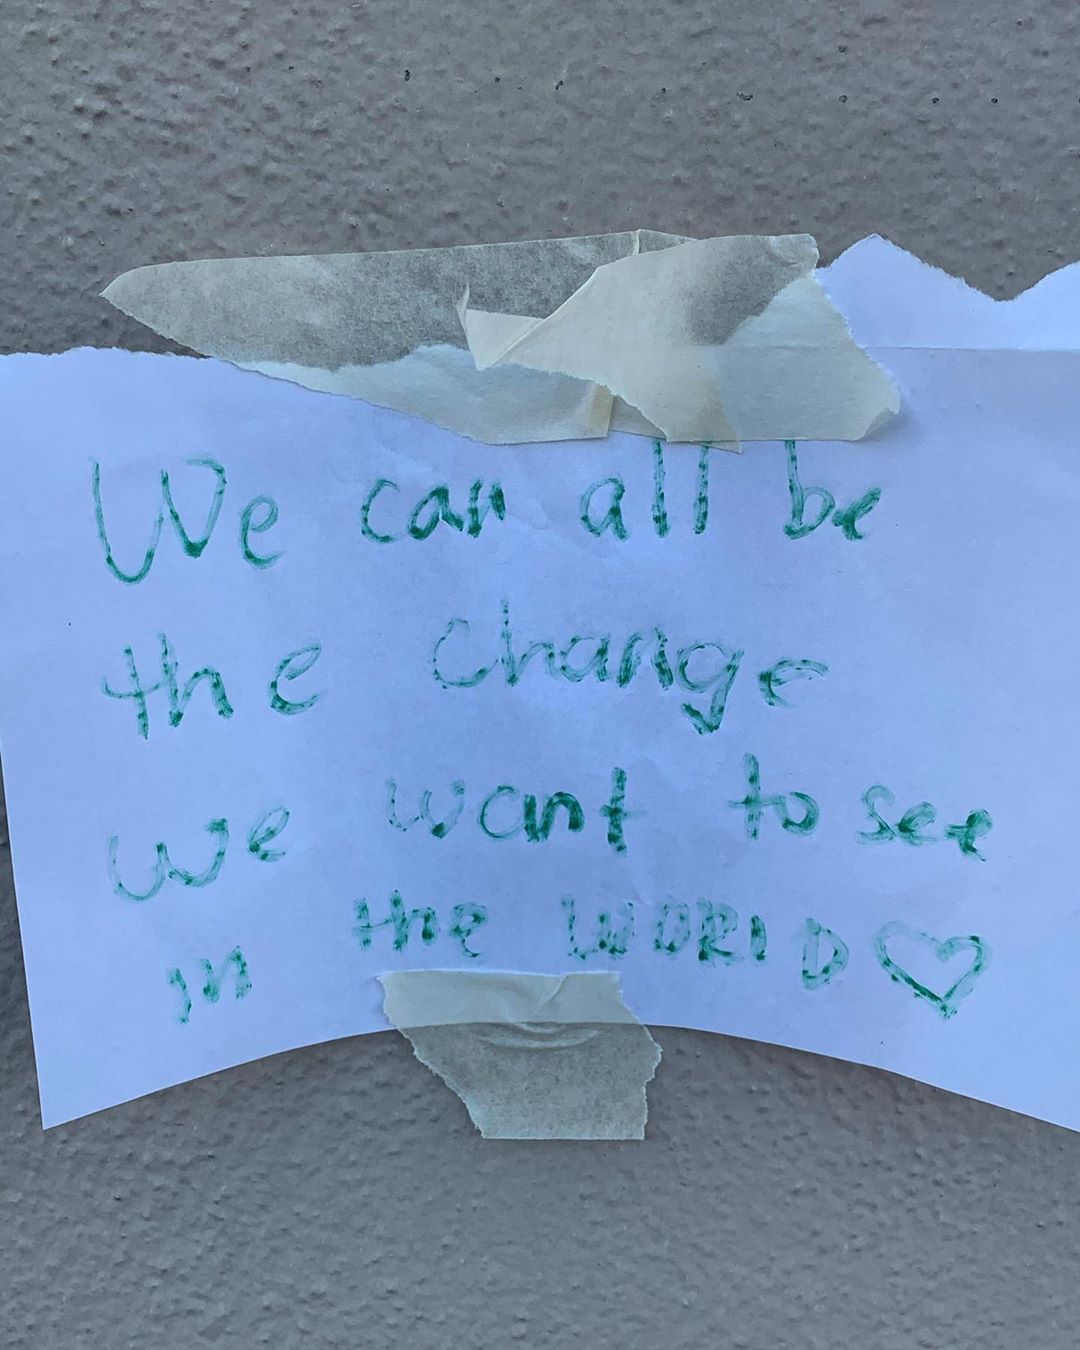 We can all be
the change
we want to see
in the WORLD ♡